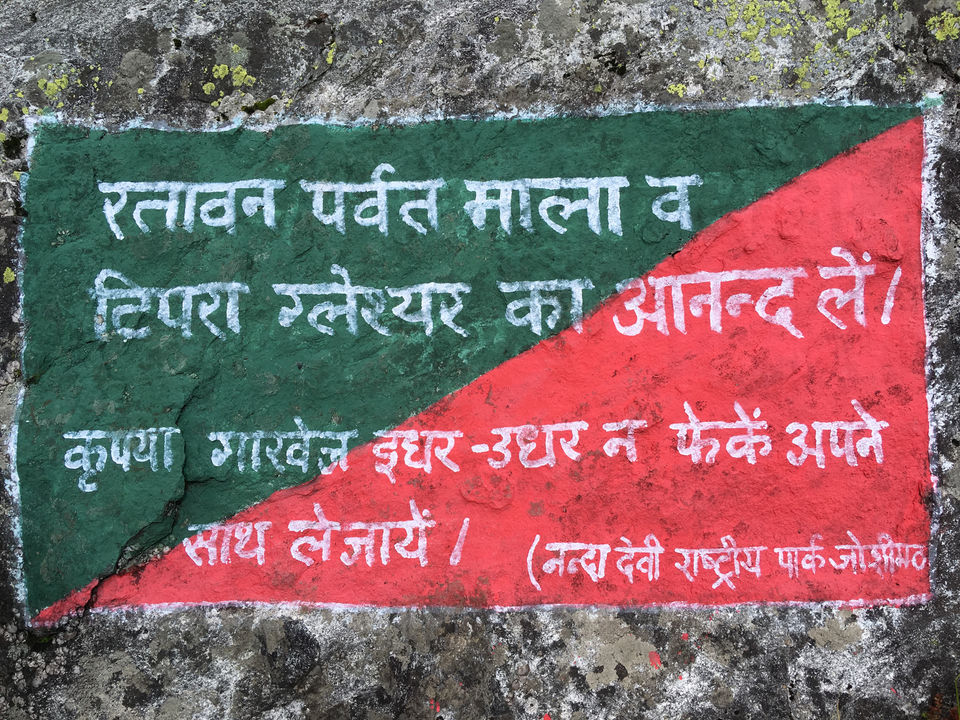 रतावन पर्वत माला व
टिपरा ग्लेश्यर का आनन्द लें।
कृपया गारवेज इधर-उधर न फेकें अपने
साथ ले जायें।
(नन्दा देवी राष्ट्रीय पार्क जोशीमठ